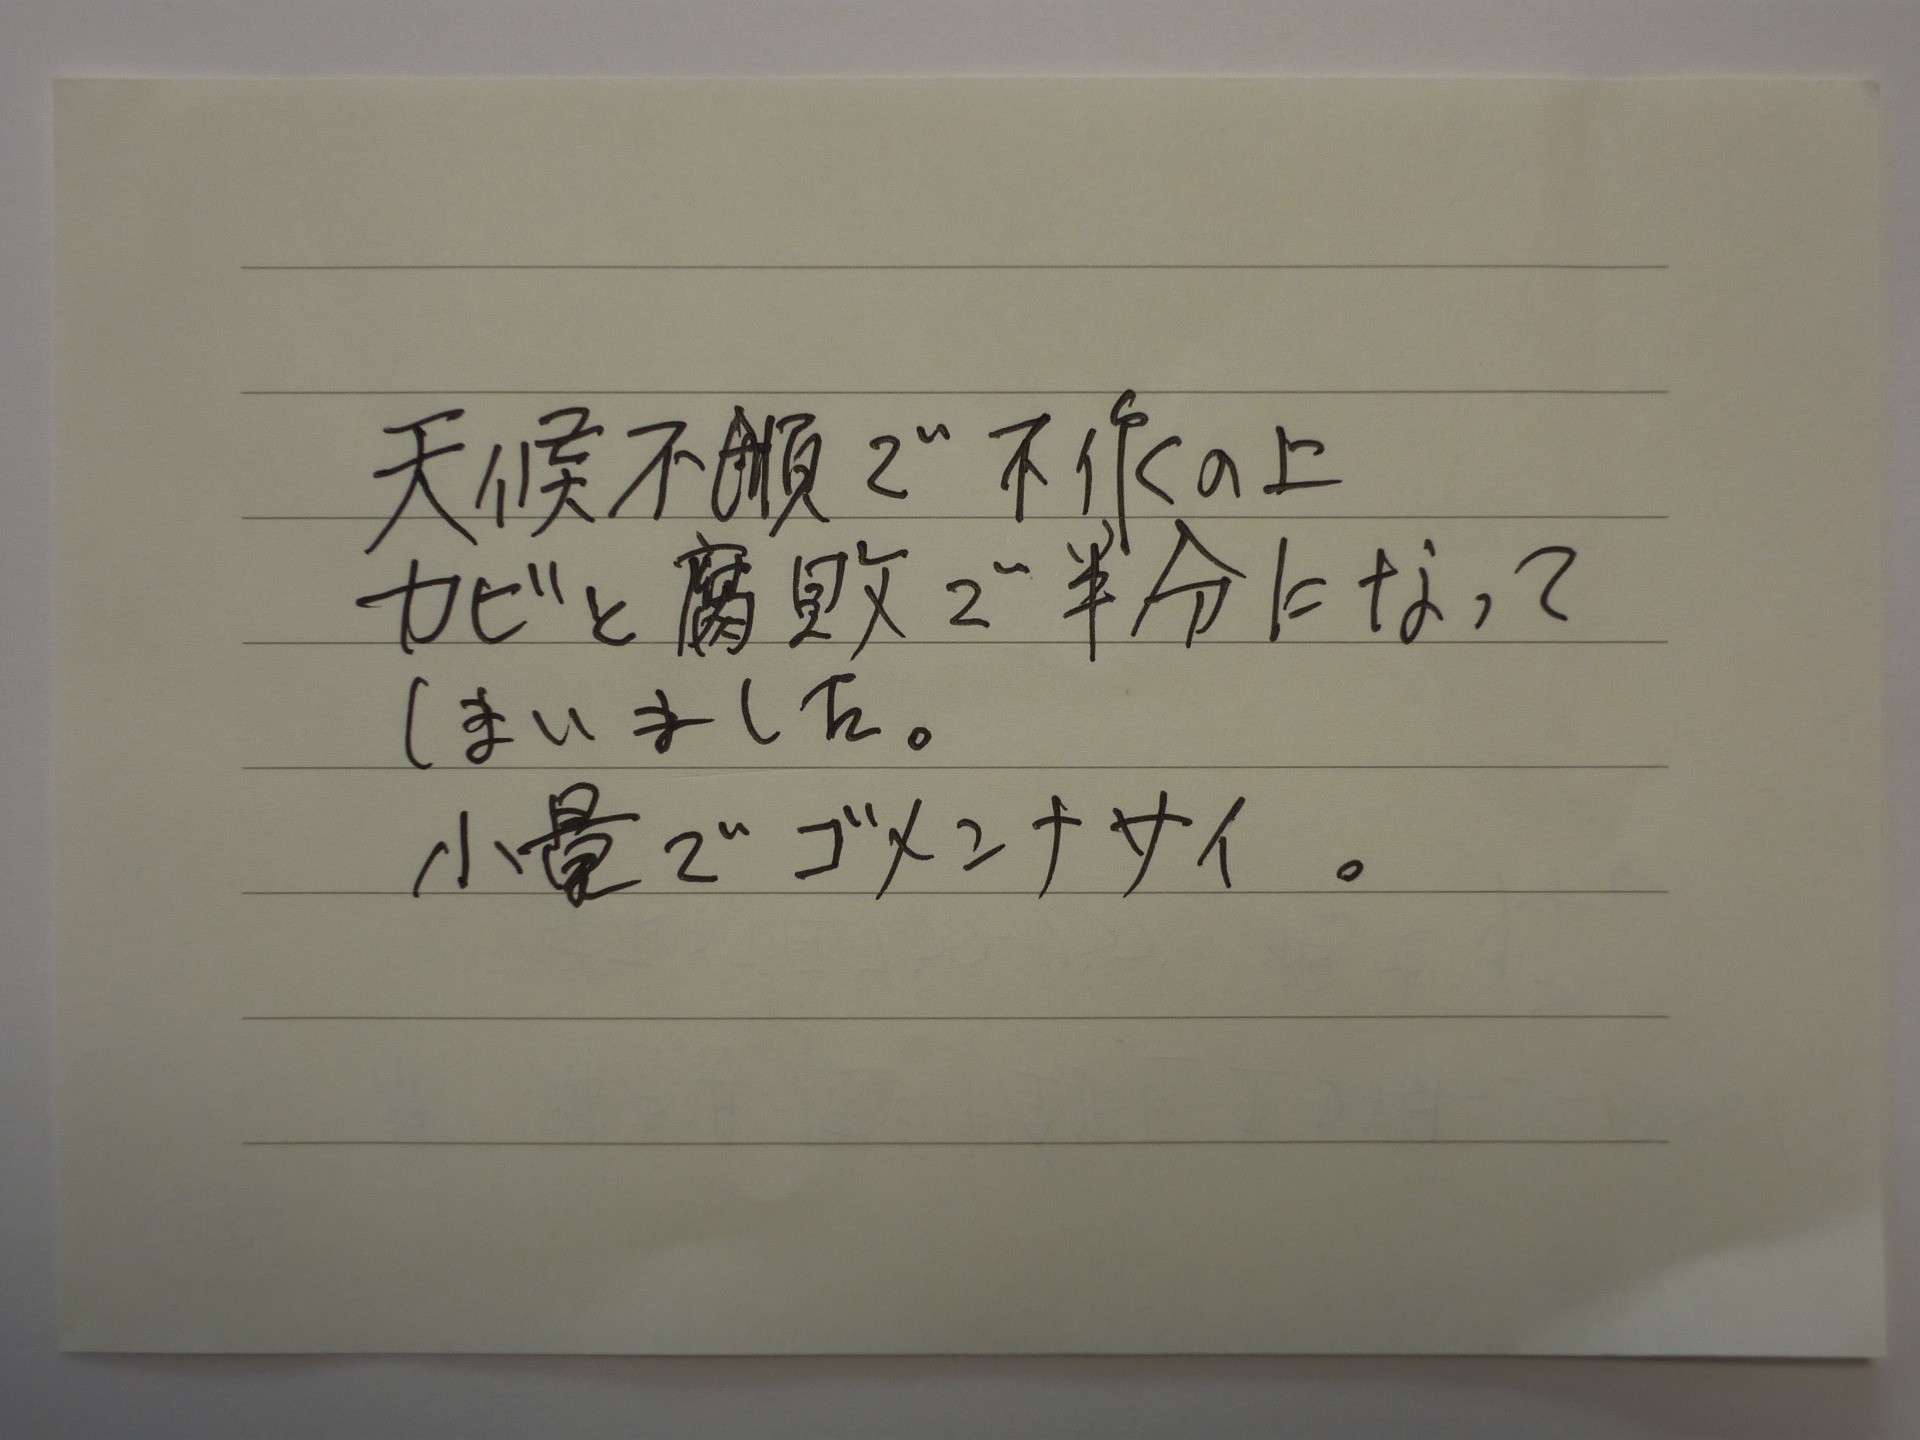 天候不順で不作の上
カビと腐敗で半分になって
しまいました。
小量でゴメンナサイ。